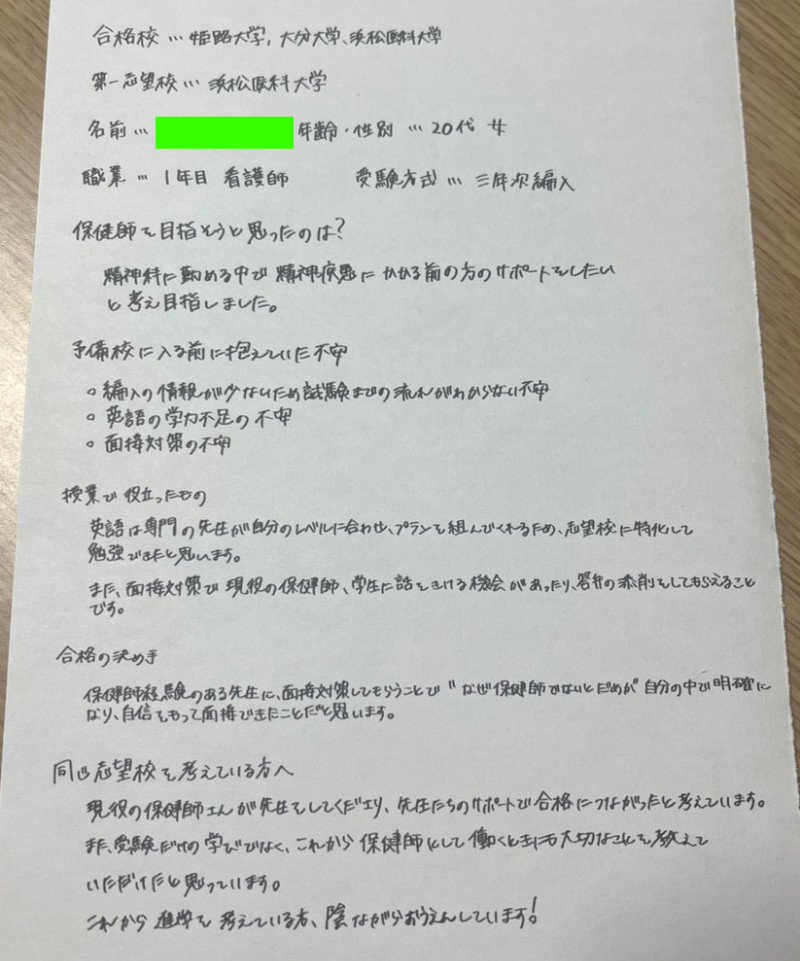 合格校 … 姫路大学, 大分大学、浜松医科大学
第一志望校 … 浜松医科大学
名前 … 年齢・性別 … 20代 女
職業 … 1年目 看護師 受験方式 … 三年次編入
保健師を目指そうと思ったのは?
精神科に勤める中で 精神疾患に かかる前の方のサポートをしたい
と考え目指しました。
予備校に入る前に抱えていた不安
○ 編入の情報が少ないため試験までの流れがわからない不安
○ 英語の学力不足の不安
○ 面接対策の不安
授業で役立ったもの
英語は専門の先生が自分のレベルに合わせ、プランを組んでくれるため、志望校に特化して
勉強できたと思います。
また、面接対策で 現役の保健師、学生に話をきける機会があったり、答弁の添削をしてもらえること
です。
合格の決め手
保健師経験のある先生に、面接対策してもらうことで "なぜ保健師でないとだめか" 自分の中で明確に
なり、自信をもって面接できたことだと思います。
同じ志望校を考えている方へ
現役の保健師さんが先生をしてくださり、先生たちのサポートで合格につながったと考えています。
また、受験だけの学びでなく、これから保健師として働くときにも大切なことを教えて
いただけたと思っています。
これから進学を考えている方、陰ながらおうえんしています!